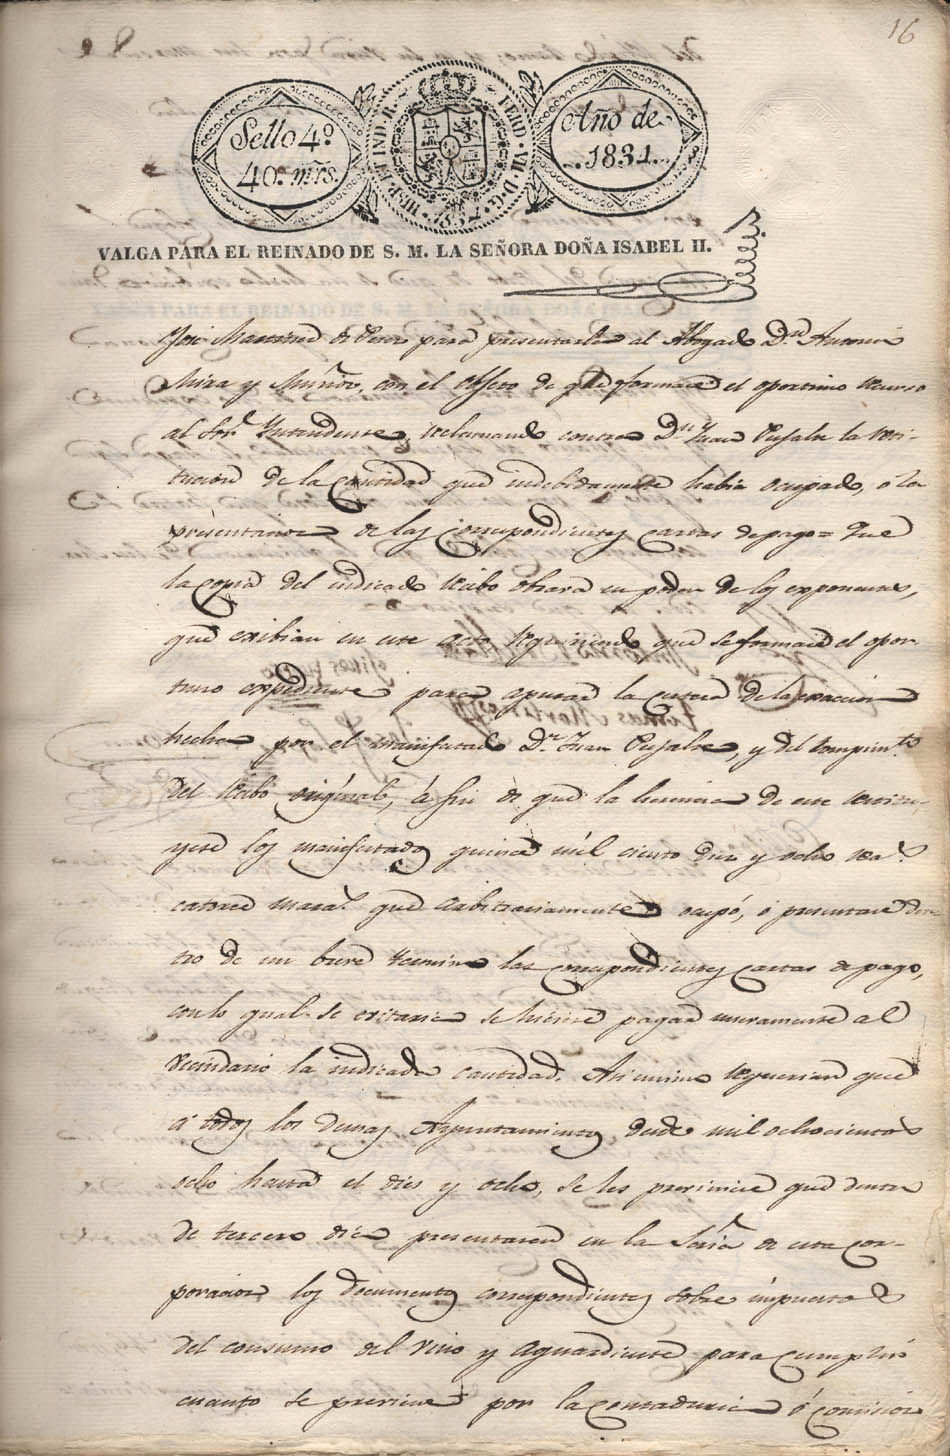 16
Sello 4º
40. mrs.
HISP. ET IND. R. FERD. VII. D. G.
Año de
1834.
VALGA PARA EL REINADO DE S. M. LA SEÑORA DOÑA ISABEL II.
José Martinez de Perez para presentarla al Abogado Dn. Antonio
Mira y con el objeto de que formare el oportuno recurso
al Sor. Yntendente, reclamando contra Dn. Juan Pujalte la resti-
tucion de la cantidad que indebidamente habia ocupado, o la
presentacion de las correspondientes cartas de pago = Que
la copia del indicado recibo obrara en poder de los exponentes,
que exibian en este acto requiriendo que se formare el opor-
tuno expediente para apurar la certeza de la exaccion
hecha por el manifestado Dn. Juan Pujalte, y del
del recibo original, á fin de que la herencia de este restitu-
yese los manifestados quince mil ciento diez y ocho rea.s
catorce marav. que arbitrariamente ocupó, ó presentare den-
tro de un breve termino las correspondientes cartas de pago,
con lo qual se evitaria se hiciese pagar nuevamente al
vecindario la indicada cantidad. Asimismo requerian que
á todos los demas Ayuntamientos desde mil ochocientos
ocho hasta el diez y ocho, se les previniese que dentro
de tercero dia presentaren en la Sria. de esta cor-
poracion los documentos correspondientes sobre impuestos
del consumo del vino y aguardiente para cumplir
cuanto se previene por la Contaduria ó comision